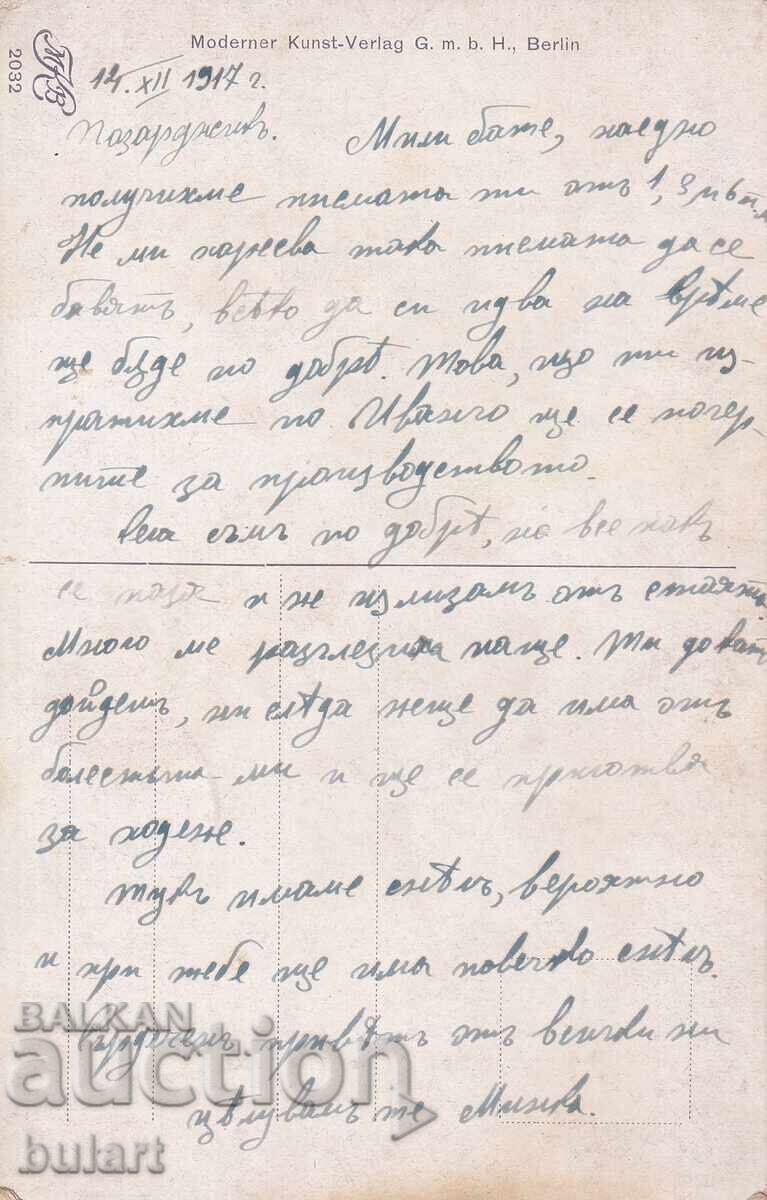 Moderner Kunst-Verlag G. m. b. H., Berlin
2032
14. XII 1917 г.
Пазарджикъ. Мили бате, наедно
получихме писмата ти отъ 1, 3
Не ми харесва така писмата да се
бавятъ, всѣко да си идва на врѣме
ще бѫде по добрѣ. Това, що ти из-
пратихме по Иванчо ще се почер-
пите за производството.
Сега съмъ по добрѣ, но все пакъ
се пазя и не излизамъ отъ стаята
Много ме разглезиха наще. Ти докат
дойдешъ, ни слѣда неще да има отъ
болестьта ми и ще се приготва
за ходене.
Тукъ имаме снѣгъ, вероятно
и при тебе ще има повечко снѣгъ.
Сърдеченъ привѣтъ отъ всички ни
цѣлувамъ те Минка.
BALKAN
auction
bulart